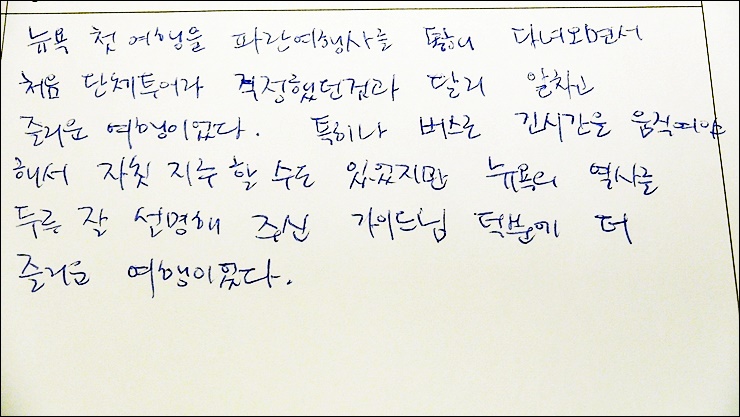 뉴욕 첫 여행을 파란여행사를 통해 다녀오면서
처음 단체투어라 걱정했던것과 달리 알차고
즐거운 여행이었다. 특히나 버스로 긴시간을 움직여야
해서 자칫 지루 할 수도 있었지만 뉴욕의 역사를
두루 잘 설명해 주신 가이드님 덕분에 더
즐거운 여행이었다.